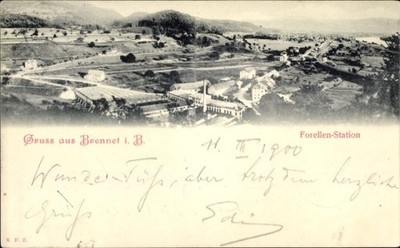 Gruss aus Brennet i. B.
Forellen-Station
11. III 1900
aber trotzdem herzliche
Grüße